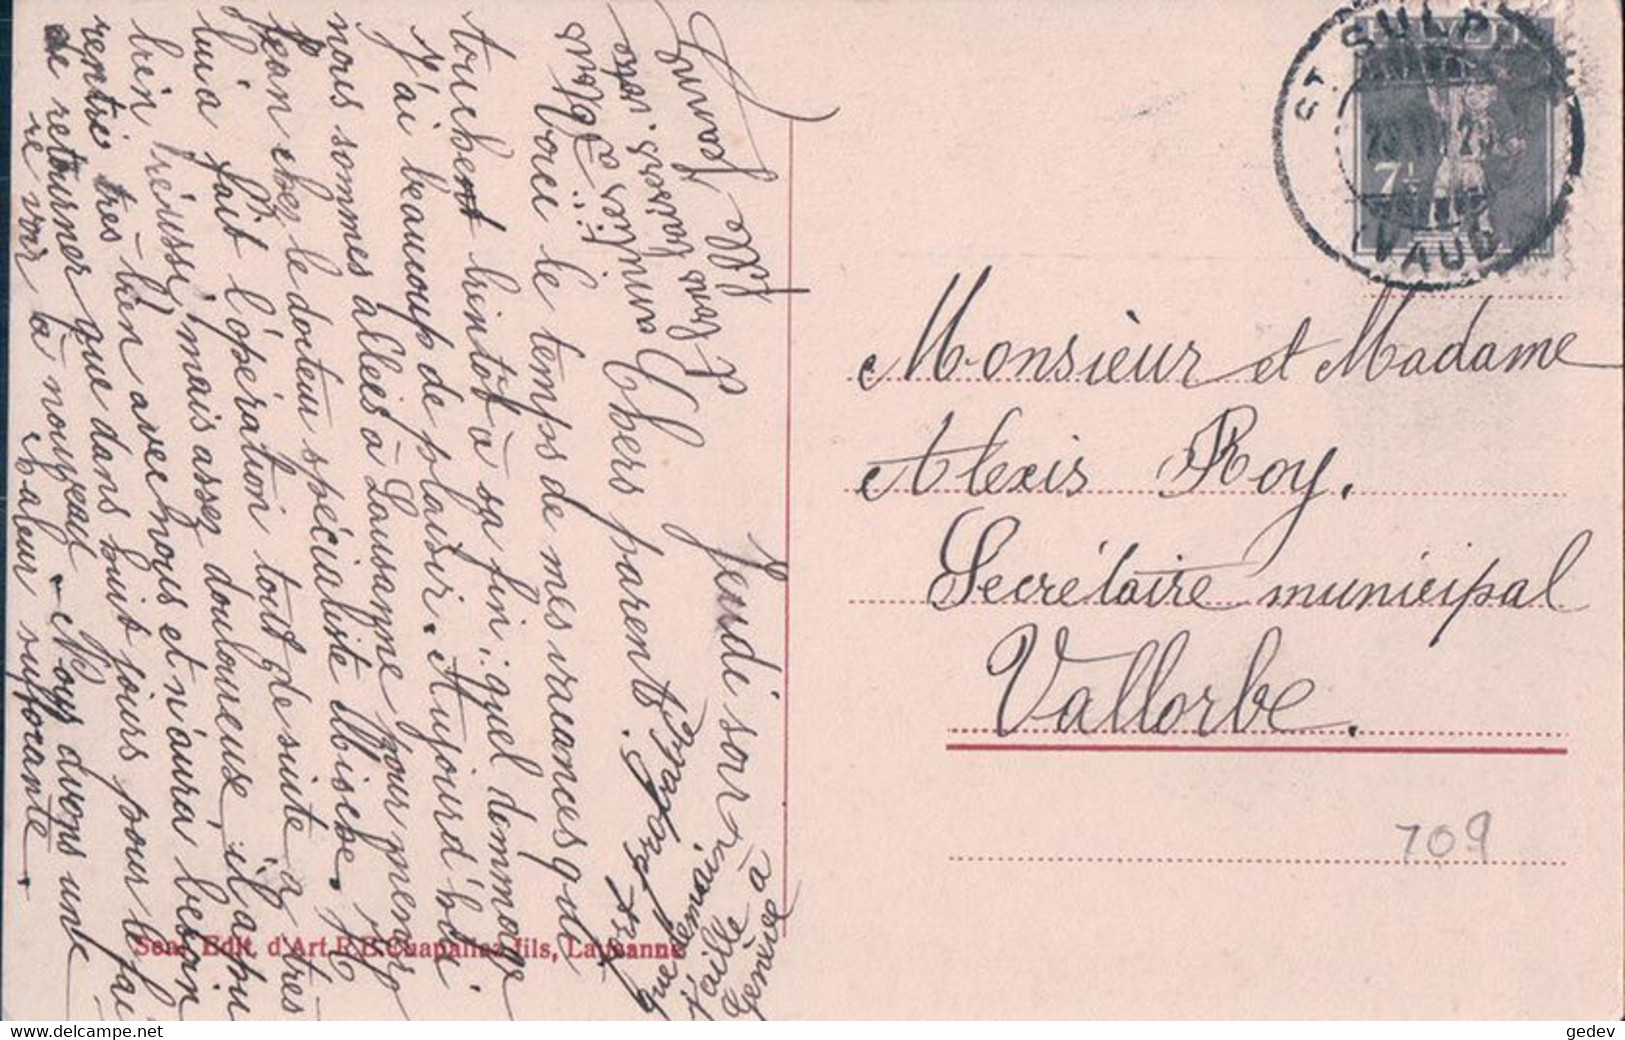 Jeudi soir
Chers parents.
Voici le temps de mes vacances qui
touchent bientôt à sa fin; quel dommage
j'ai beaucoup de plaisir. Aujourd'hui
nous sommes allées à Lausanne pour mener
Jean chez le docteur spécialiste
lui a fait l'opération tout de suite a très
bien réussi, mais assez douloureuse, il a pu
rentré très bien avec nous et n'aura besoin
de retourner que dans huit jours pour le faire
voir à nouveau. Nous avons une
chaleur suffocante.
amitiés à tous
bons baisers votre
Jeanne
que demain
j'aille à
Genève
ST. SULPICE
(VAUD)
7½
Monsieur et Madame
Alexis Roy.
Secrétaire municipal
Vallorbe.
709
Soc. Edit. d'Art R.E. Chapallaz fils, Lausanne
gedev
www.delcampe.net